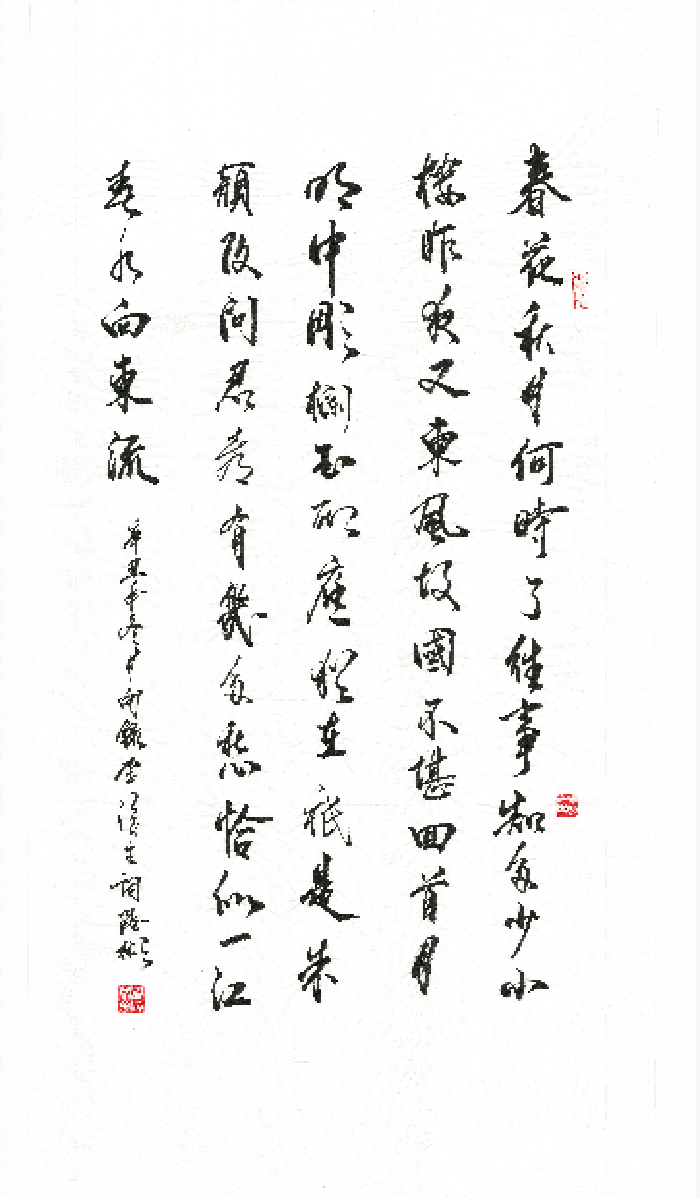 春花秋月何時了往事知多少小
樓昨夜又東風故國不堪回首月
明中彫欄玉砌應猶在祇是朱
顏改問君有幾多愁恰似一江
春水向東流
辛丑年冬錄主詞